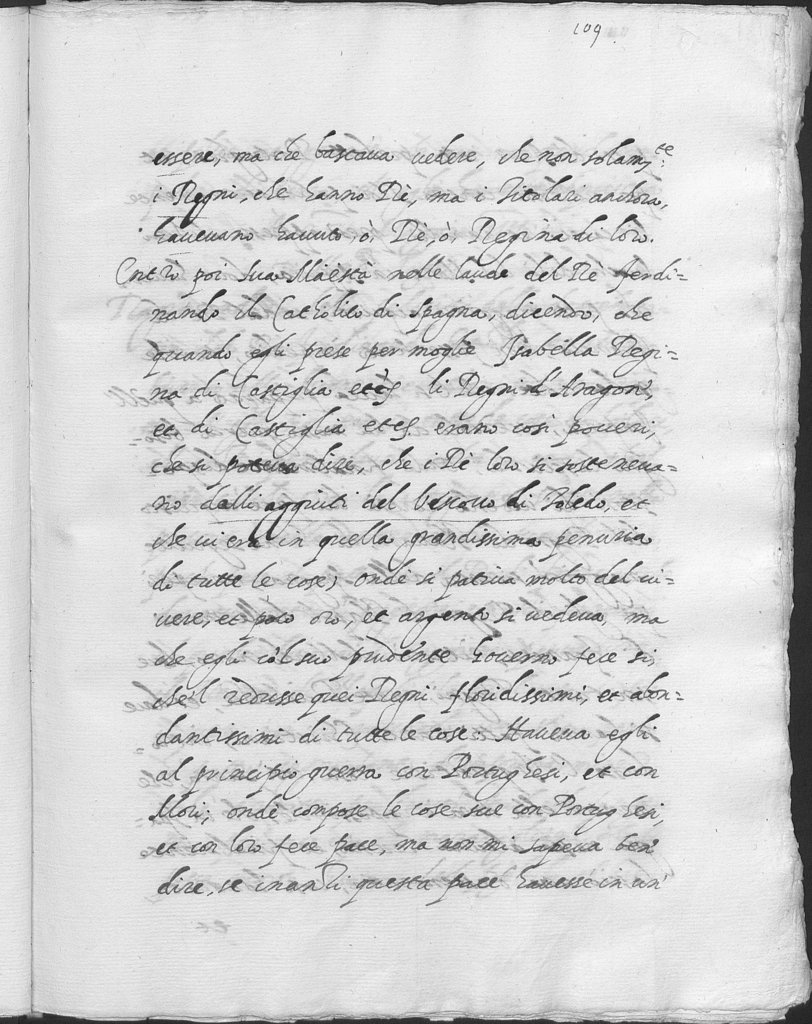 109
essere, ma che bastaua uedere, che non solam.te
i Regni, che hanno Rè, ma i Titolari anchora,
haueuano hauuto, ò, Rè, ò, Regina di loro.
Entrò poi sua Maestà nelle laude del Rè Ferdi=
nando il Catholico di Spagna, dicendo, che
quando egli prese per moglie Isabella Regi=
na di Castiglia etc. li Regni d'Aragon',
et di Castiglia etc. erano così poueri,
che si poteua dire, che i Rè loro si sosteneua=
no dalli aggiuti del Vescouo di Toledo, et
che ui era in quella grandissima penuria
di tutte le cose, onde si patiua molto del ui=
uere, et poco oro, et argento si uedeua, ma
che egli co'l suo prudente Gouerno fece si,
che'l redusse quei Regni floridissimi, et abon=
dantissimi di tutte le cose: Haueua egli
al principio guerra con Portughesi, et con
Mori; onde compose le cose sue con Portughesi,
et con loro fece pace, ma non mi sapeua ben'
dire, se inanzi questa pace hauesse in un'